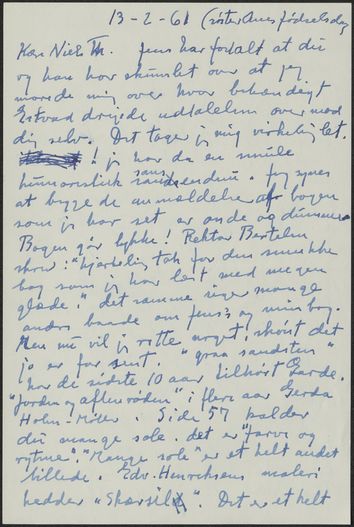 13-2-61 (søster Anes fødselsdag
Kære Niels Th. Jens har fortalt at du
og han har skumlet over at jeg
morede mig over hvor behændigt
Estvad drejede udtalelsen over mod
dig selv. Det tager jeg mig virkelig let.
! jeg har da en smule
humoristisk sans endnu. Jeg synes
at byggede anmeldelse af bogen
som jeg har set er onde og dumme
Bogen gør lykke! Rektor Bertelsen
skrev: "hjertelig tak for den smukke
bog som jeg har læst med megen
glæde." det samme siger mange
andre baade om Jens's og min bog.
Men nu vil jeg rette noget, skønt det
jo er for sent. "graa sandsten"
har de sidste 10 aar tilhørt Garde.
"Jorden og aftenrøden" i flere aar Gerda
Holm-Møller. Side 57 kalder
du mange sole. det er "farve og
rytme". "Mange sole" er et helt andet
billede. Edv. Henriksens maleri
hedder "Skærsild". Det er et helt